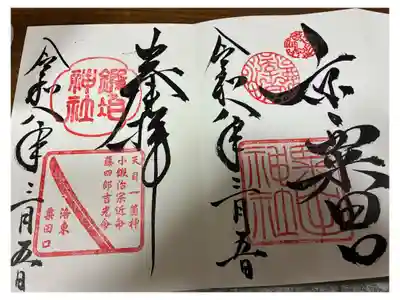 京 粟田口
粟田神社
令和八年三月五日
奉拝
鍛冶神社
天目一箇神
小鍛冶宗近命
藤四郎吉光命
洛東
粟田口
令和八年三月五日